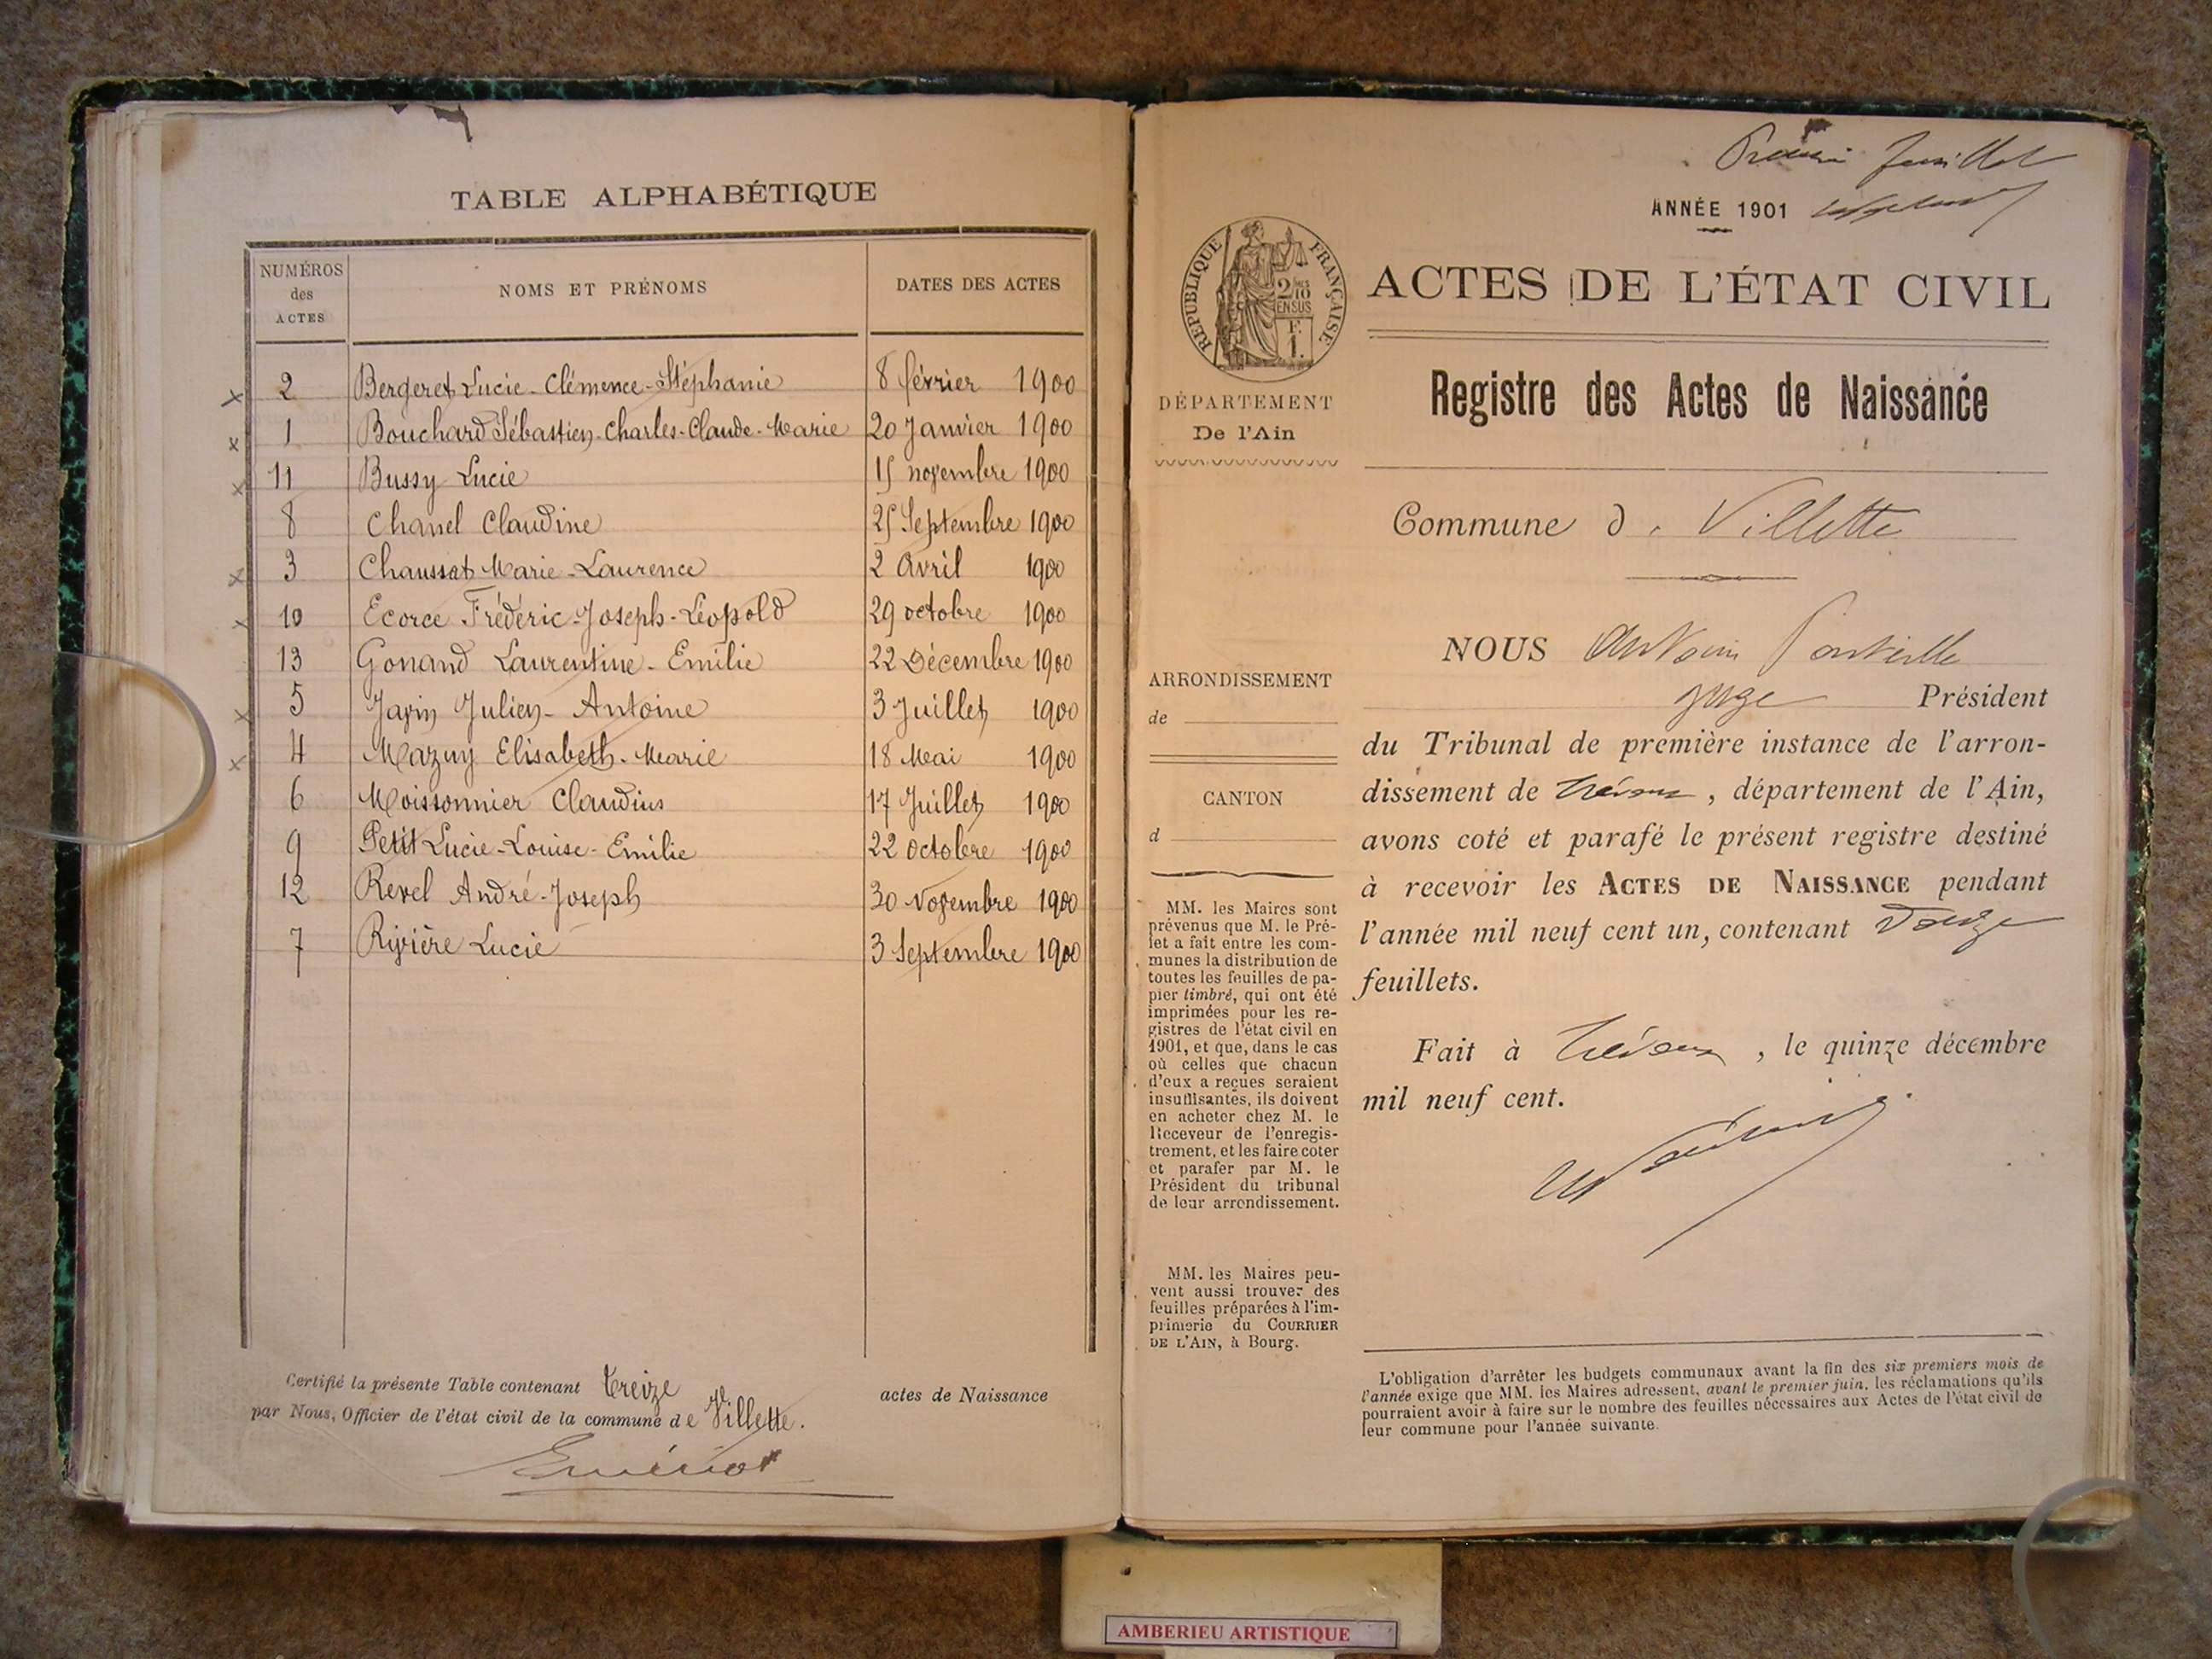 TABLE ALPHABÉTIQUE
NUMÉROS des ACTES
NOMS ET PRÉNOMS
DATES DES ACTES
2 Bergeret Lucie-Clémence-Stéphanie 8 février 1900
1 Bouchard Sébastien-Charles-Claude-Marie 20 Janvier 1900
11 Bussy Lucie 15 novembre 1900
8 Chanel Claudine 25 Septembre 1900
3 Chaussat Marie-Laurence 2 Avril 1900
10 Ecorce Frédéric-Joseph-Léopold 29 octobre 1900
13 Gonand Laurentine-Emilie 22 Décembre 1900
5 Julien-Antoine 3 Juillet 1900
4 Mazuy Elisabeth-Marie 18 Mai 1900
6 Moissonnier Claudius 17 Juillet 1900
9 Petit Lucie-Louise-Emilie 22 Octobre 1900
12 Revel André-Joseph 30 Novembre 1900
7 Rivière Lucie 3 Septembre 1900
Certifié la présente Table contenant treize actes de Naissance
par Nous, Officier de l'état civil de la commune de Villette.
Premier feuillet
ANNÉE 1901
RÉPUBLIQUE FRANÇAISE
2/10 EN SUS
F.
1.
ACTES DE L'ÉTAT CIVIL
Registre des Actes de Naissance
DÉPARTEMENT
De l'Ain
Commune d. Villette
ARRONDISSEMENT
de
CANTON
d
MM. les Maires sont
prévenus que M. le Pré-
fet a fait entre les com-
munes la distribution de
toutes les feuilles de pa-
pier timbré, qui ont été
imprimées pour les re-
gistres de l'état civil en
1901, et que, dans le cas
où celles que chacun
d'eux a reçues seraient
insuffisantes, ils doivent
en acheter chez M. le
Receveur de l'enregis-
trement, et les faire coter
et parafer par M. le
Président du tribunal
de leur arrondissement.
MM. les Maires peu-
vent aussi trouver des
feuilles préparées à l'im-
primerie du COURRIER
DE L'AIN, à Bourg.
NOUS Antoine
juge Président
du Tribunal de première instance de l'arron-
dissement de Trévoux, département de l'Ain,
avons coté et parafé le présent registre destiné
à recevoir les ACTES DE NAISSANCE pendant
l'année mil neuf cent un, contenant douze
feuillets.
Fait à Trévoux, le quinze décembre
mil neuf cent.
L'obligation d'arrêter les budgets communaux avant la fin des six premiers mois de
l'année exige que MM. les Maires adressent, avant le premier juin, les réclamations qu'ils
pourraient avoir à faire sur le nombre des feuilles nécessaires aux Actes de l'état civil de
leur commune pour l'année suivante.
AMBERIEU ARTISTIQUE